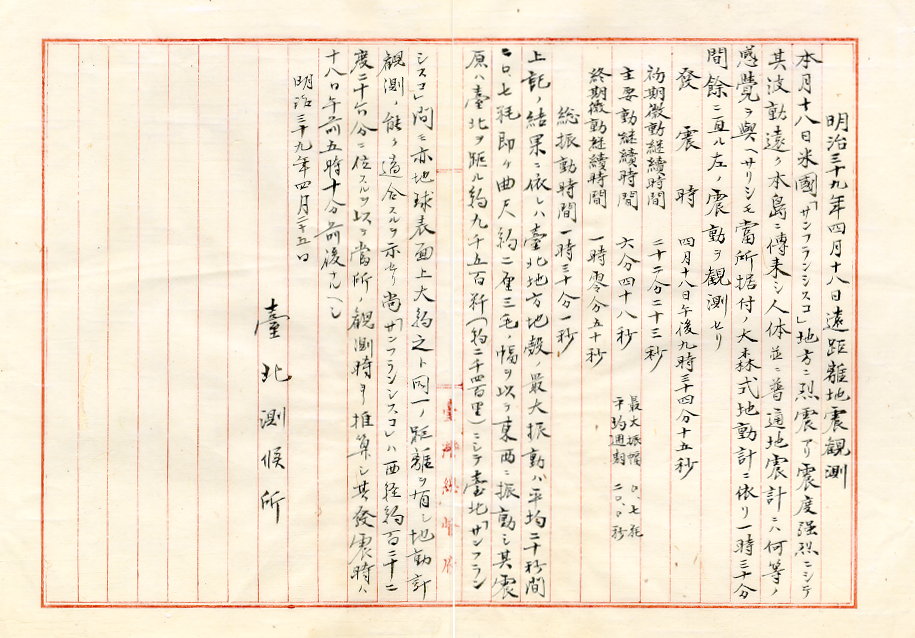 明治三十九年四月十八日遠距離地震観測
本月十八日米國「サンフランシスコ」地方ニ烈震アリ震度强烈ニシテ
其波動遠ク本島ニ傳来シ人体並ニ普通地震計ニハ何等ノ
感覺ヲ與ヘサリシモ當所据付ノ大森式地動計ニ依リ一時三十分
間餘ニ亘ル左ノ震動ヲ観測セリ
發震時 四月十八日午後九時三十四分十五秒
初期微動継續時間 二十二分二十三秒
主要動継續時間 六分四十八秒 最大振幅 〇、七粍
平均週期 二〇、〇秒
終期微動継續時間 一時零分五十秒
総振動時間 一時三十分一秒
上記ノ結果ニ依レハ臺北地方地殻ノ最大振動ハ平均二十秒間
ニ〇、七粍即ケ曲尺約二厘三毛ノ幅ヲ以テ東西ニ振動シ其震
原ハ臺北ヲ距ル約九千五百粁(約二千四百里)ニシテ臺北「サンフラン
シスコ」間モ亦地球表面上大約之ト同一ノ距離ヲ有シ地動計
観測ノ能ク適合スルヲ示セリ尚「サンフランシスコ」ハ西径約百二十二
度二十六分ニ位スルヲ以テ當所ノ観測時ヨリ推算シ其發震時ハ
十八日午前五時十分前後ナルヘシ
明治三十九年四月二十五日
臺北測候所
臺灣總督府